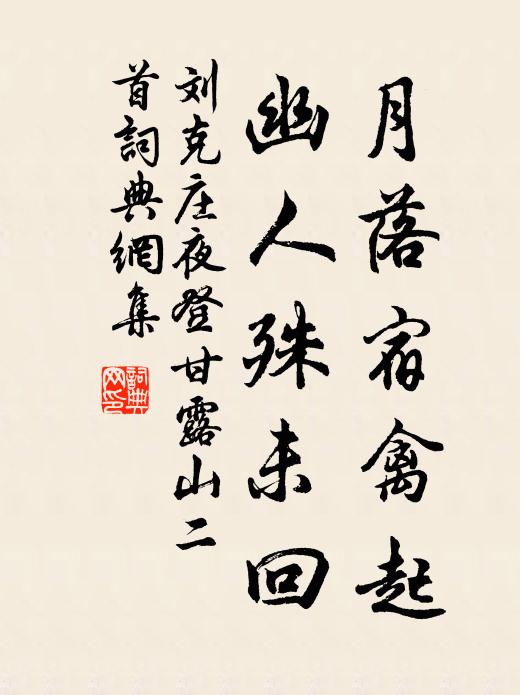 月落宿禽起
幽人殊未回
刘克庄夜登甘露山二
首詞典網集
詞典網印